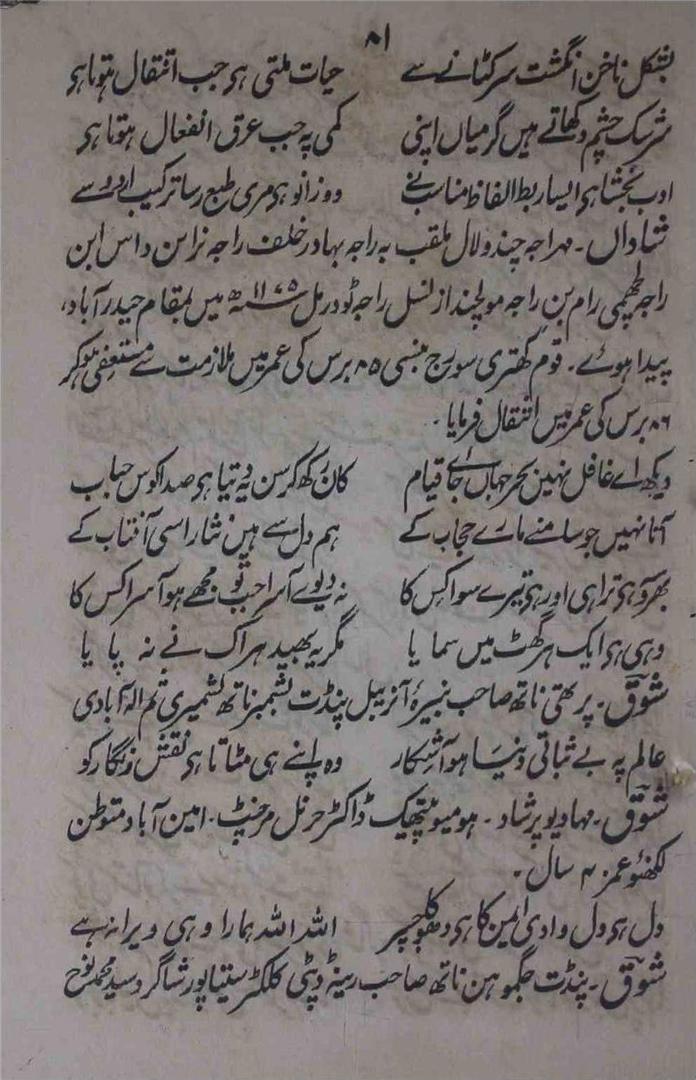 ۸۱
بشکل ناخن انگشت سر کٹانے سے حیات ملتی ہو جب انتقال ہوتا ہو
سرشک چشم دکھاتے ہیں گرمیاں اپنی کمی پہ جب عرق انفعال ہوتا ہو
ادب بخشا ہو ایسا ربط الفاظ مناسب نے دو زانو ہو مری طبع رسا ترکیب اردو سے
شاداں ۔ مہراجہ چندو لال ملقب بہ راجہ بہادر خلف راجہ نراین داس ابن
راجہ لچھمی رام بن راجہ مولچند از نسل راجہ ٹوڈرمل ۱۱۷۵ھ میں بمقام حیدرآباد،
پیدا ہوئے ۔ قوم کھتری سورج بنسی ۸۵ برس کی عمر میں ملازمت سے مستعفی ہوکر
۸۶ برس کی عمر میں انتقال فرمایا ۔
دیکھ اے غافل نہیں بحر جہاں جائے قیام کان رکھ کر سن یہ دیتا ہو صدا کوس حباب
آتا نہیں جو سامنے مارے حجاب کے ہم دل سے ہیں نثار اسی آفتاب کے
بھروسہ ہی ترا ہی اور ہو تیرے سوا کس کا نہ دیوے آسرا جب تو مجھے ہو آسرا کس کا
وہی ہو ایک ہر گھٹ میں سمایا مگر یہ بھید ہر اک نے نہ پایا
شوق ۔ پرتھی ناتھ صاحب نبیرۂ آنریبل پنڈت بشمبر ناتھ کشمیری ثم الہ آبادی
عالم پہ بے ثباتی دنیا ہو آشکار وہ اپنے ہی مٹاتا ہو نقش و نگار کو
شوق ۔ مہادیو پرشاد ۔ ہومیوپتھیک ڈاکٹر جرنل مرچنٹ ۔ امین آباد متوطن
لکھنؤ عمر ۴۰ سال ۔
دل ہو دل وادی ایمن کا ہو دھوکا جسپر اللہ اللہ ہمارا وہی ویرانہ ہے
شوق ۔ پنڈت جگموہن ناتھ صاحب رینہ ڈپٹی کلکٹر سیتاپور شاگرد سید محمد نوح